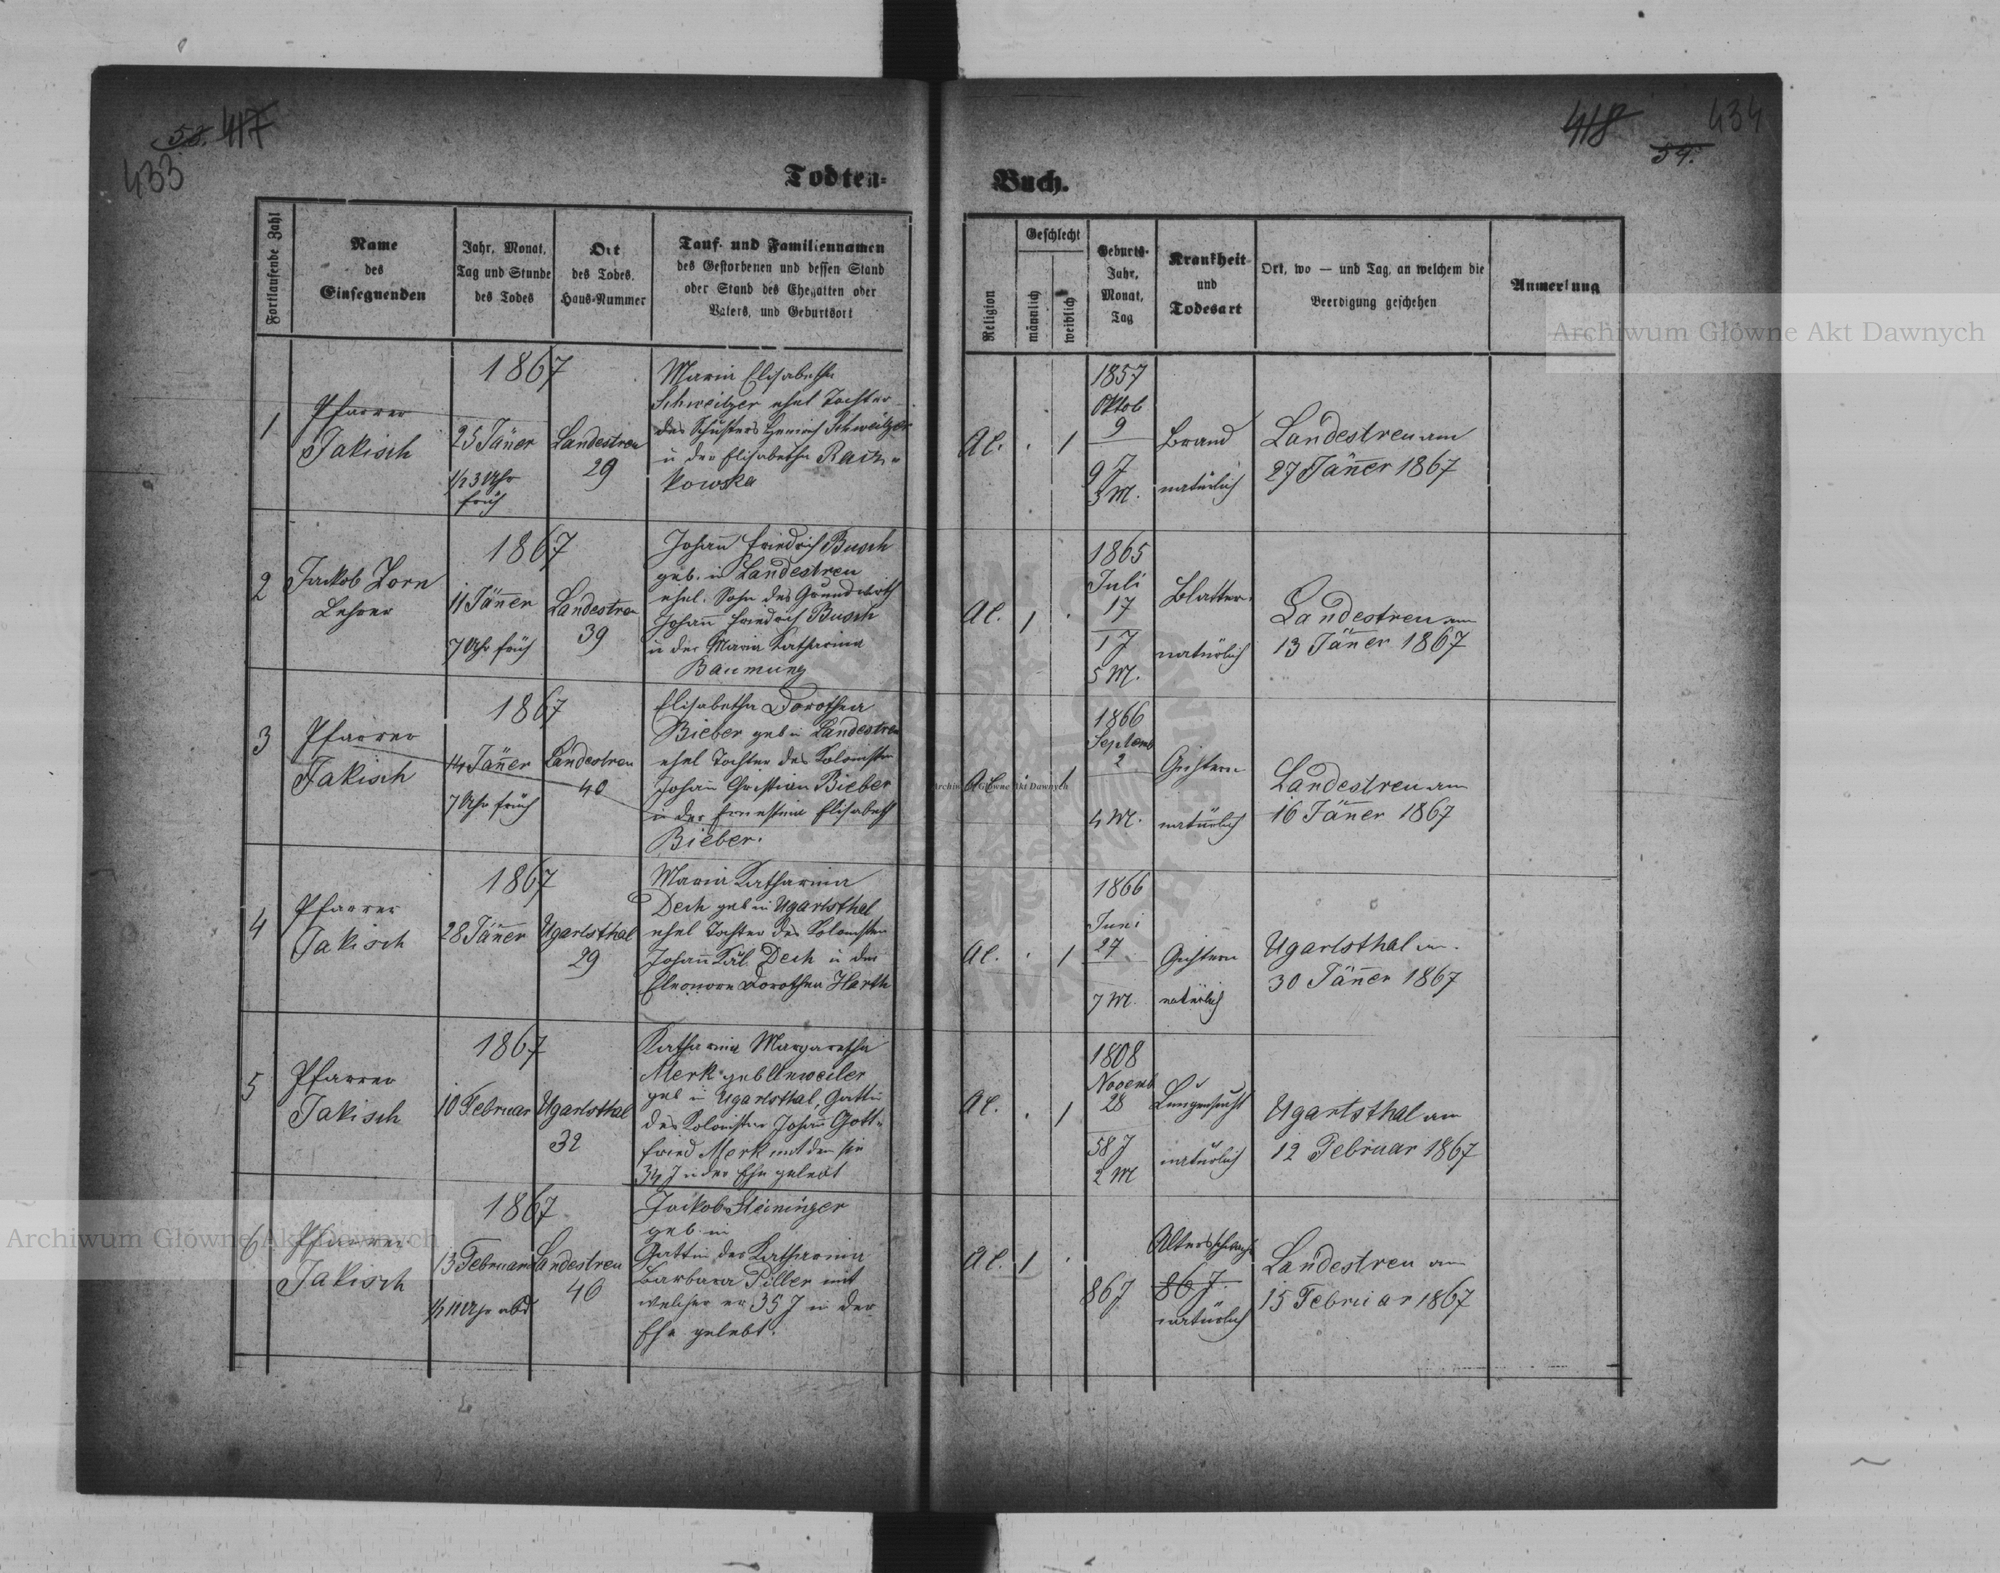 58. 417
433
418 434
59.
Todten-
Buch.
Fortlaufende Zahl
Name
des
Einsegnenden
Jahr, Monat,
Tag und Stunde
des Todes
Ort
des Todes,
Haus-Nummer
Tauf- und Familiennamen
des Gestorbenen und dessen Stand
oder Stand des Ehegatten oder
Vaters, und Geburtsort
Religion
Geschlecht
männlich
weiblich
Geburts-
Jahr,
Monat,
Tag
Krankheit
und
Todesart
Ort, wo — und Tag, an welchem die
Beerdigung geschehen
Anmerkung
1
Pfarrer
Jakisch
1867
25 Jäner
1/2 3 Uhr
früh
Landestreu
29
Maria Elisabetha
Schweitzer ehel Tochter
des Schusters Heinrich Schweitzer
u der Elisabetha Racz-
kowska
A C.
1
1857
Oktob
9
9 J
3 M.
Brand
natürlich
Landestreu am
27 Jäner 1867
2
Jackob Zorn
Lehrer
1867
11 Jäner
7 Uhr früh
Landestreu
39
Johann Friedrich Busch
geb. in Landestreu
ehel. Sohn des Grundwirth
Johann Friedrich Busch
u der Maria Katharina
Baumung
A C.
1
1865
Juli
17
1 J
5 M.
Blatter
natürlich
Landestreu am
13 Jäner 1867
3
Pfarrer
Jakisch
1867
14 Jäner
7 Uhr früh
Landestreu
40
Elisabetha Dorothea
Bieber geb in Landestreu
ehel Tochter des Kolonisten
Johann Christian Bieber
u der Ernestina Elisabeth
Bieber.
A C.
1
1866
Septemb
2
4 M.
natürlich
Landestreu am
16 Jäner 1867
4
Pfarrer
Jakisch
1867
28 Jäner
Ugartsthal
29
Maria Katharina
Dech geb in Ugartsthal
ehel Tochter des Kolonisten
Johann Dech u der
Eleonora Dorothea Harth
A C.
1
1866
Juni
27
7 M.
natürlich
Ugartsthal am
30 Jäner 1867
5
Pfarrer
Jakisch
1867
10 Februar
Ugartsthal
32
Katharina Margaretha
Merk geb Unweiler
geb in Ugartsthal, Gattin
des Kolonisten Johann Gott-
fried Merk mit dem sie
34 J in der Ehe gelebt
A C.
1
1808
Novemb
28
58 J
2 M
Lungensucht
natürlich
Ugartsthal am
12 Februar 1867
6
Pfarrer
Jakisch
1867
13 Februar
1/2 11 Uhr abd
Landestreu
40
Jackob Steininger
geb. in
Gattin der Katharina
Barbara Piller mit
welcher er 35 J in der
Ehe gelebt.
A C.
1
86 J
Altersschwach
86 J.
natürlich
Landestreu am
15 Februar 1867
Archiwum Główne Akt Dawnych
Archiwum Główne Akt Dawnych
Archiwum Główne Akt Dawnych